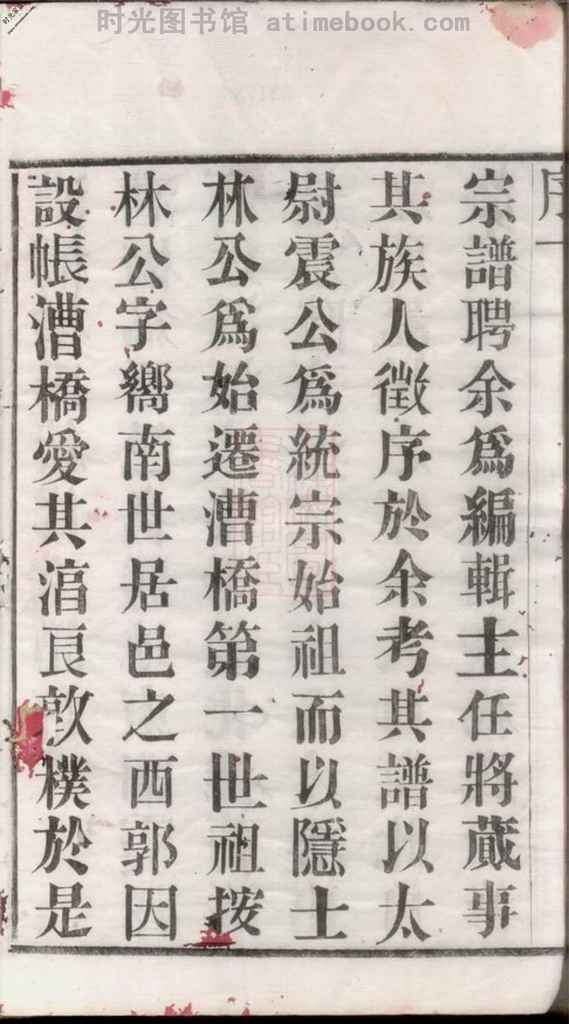 时光图书馆 atimebook.com
序一
宗譜聘余爲編輯主任將蕆事
其族人徵序於余考其譜以太
尉震公爲統宗始祖而以隱士
林公爲始遷漕橋第一世祖按
林公字嚮南世居邑之西郭因
設帳漕橋愛其湻良敦樸於是